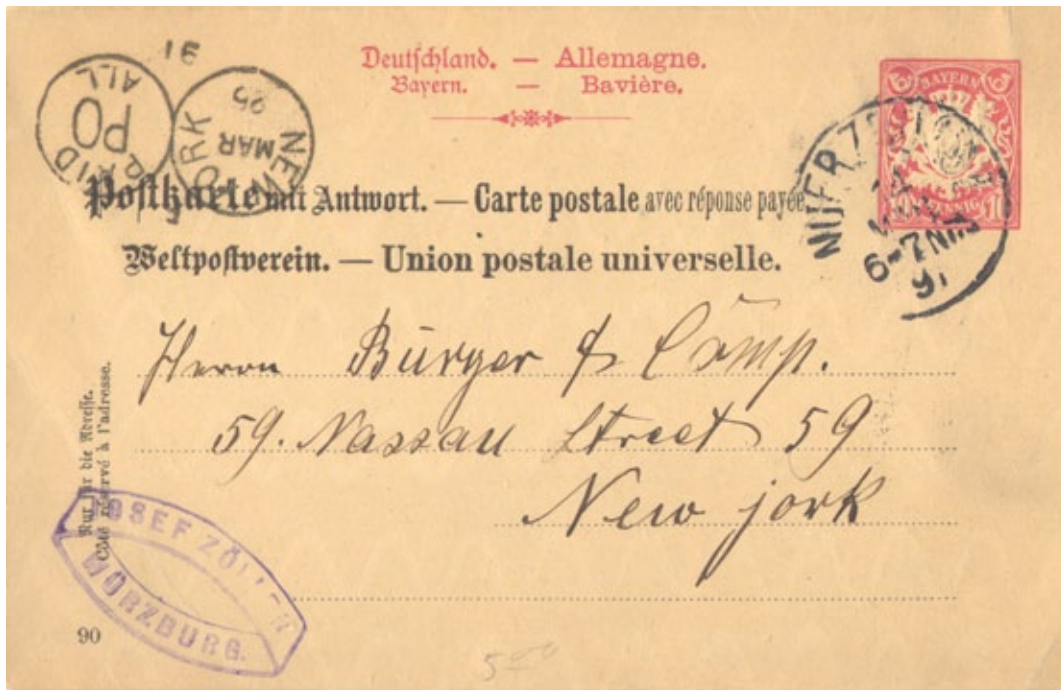 Deutschland. — Allemagne.
Bayern. — Bavière.
91
PAID
PO
ALL
NEW YORK
MAR
25
BAYERN
6-7 NM
91
Postkarte mit Antwort. — Carte postale avec réponse payée
Weltpostverein. — Union postale universelle.
Herrn Bürger & Comp.
59. Nassau Street 59
New jork
Nur für die Adresse.
Côté réservé à l'adresse.
JOSEF
WÜRZBURG.
90
5.00